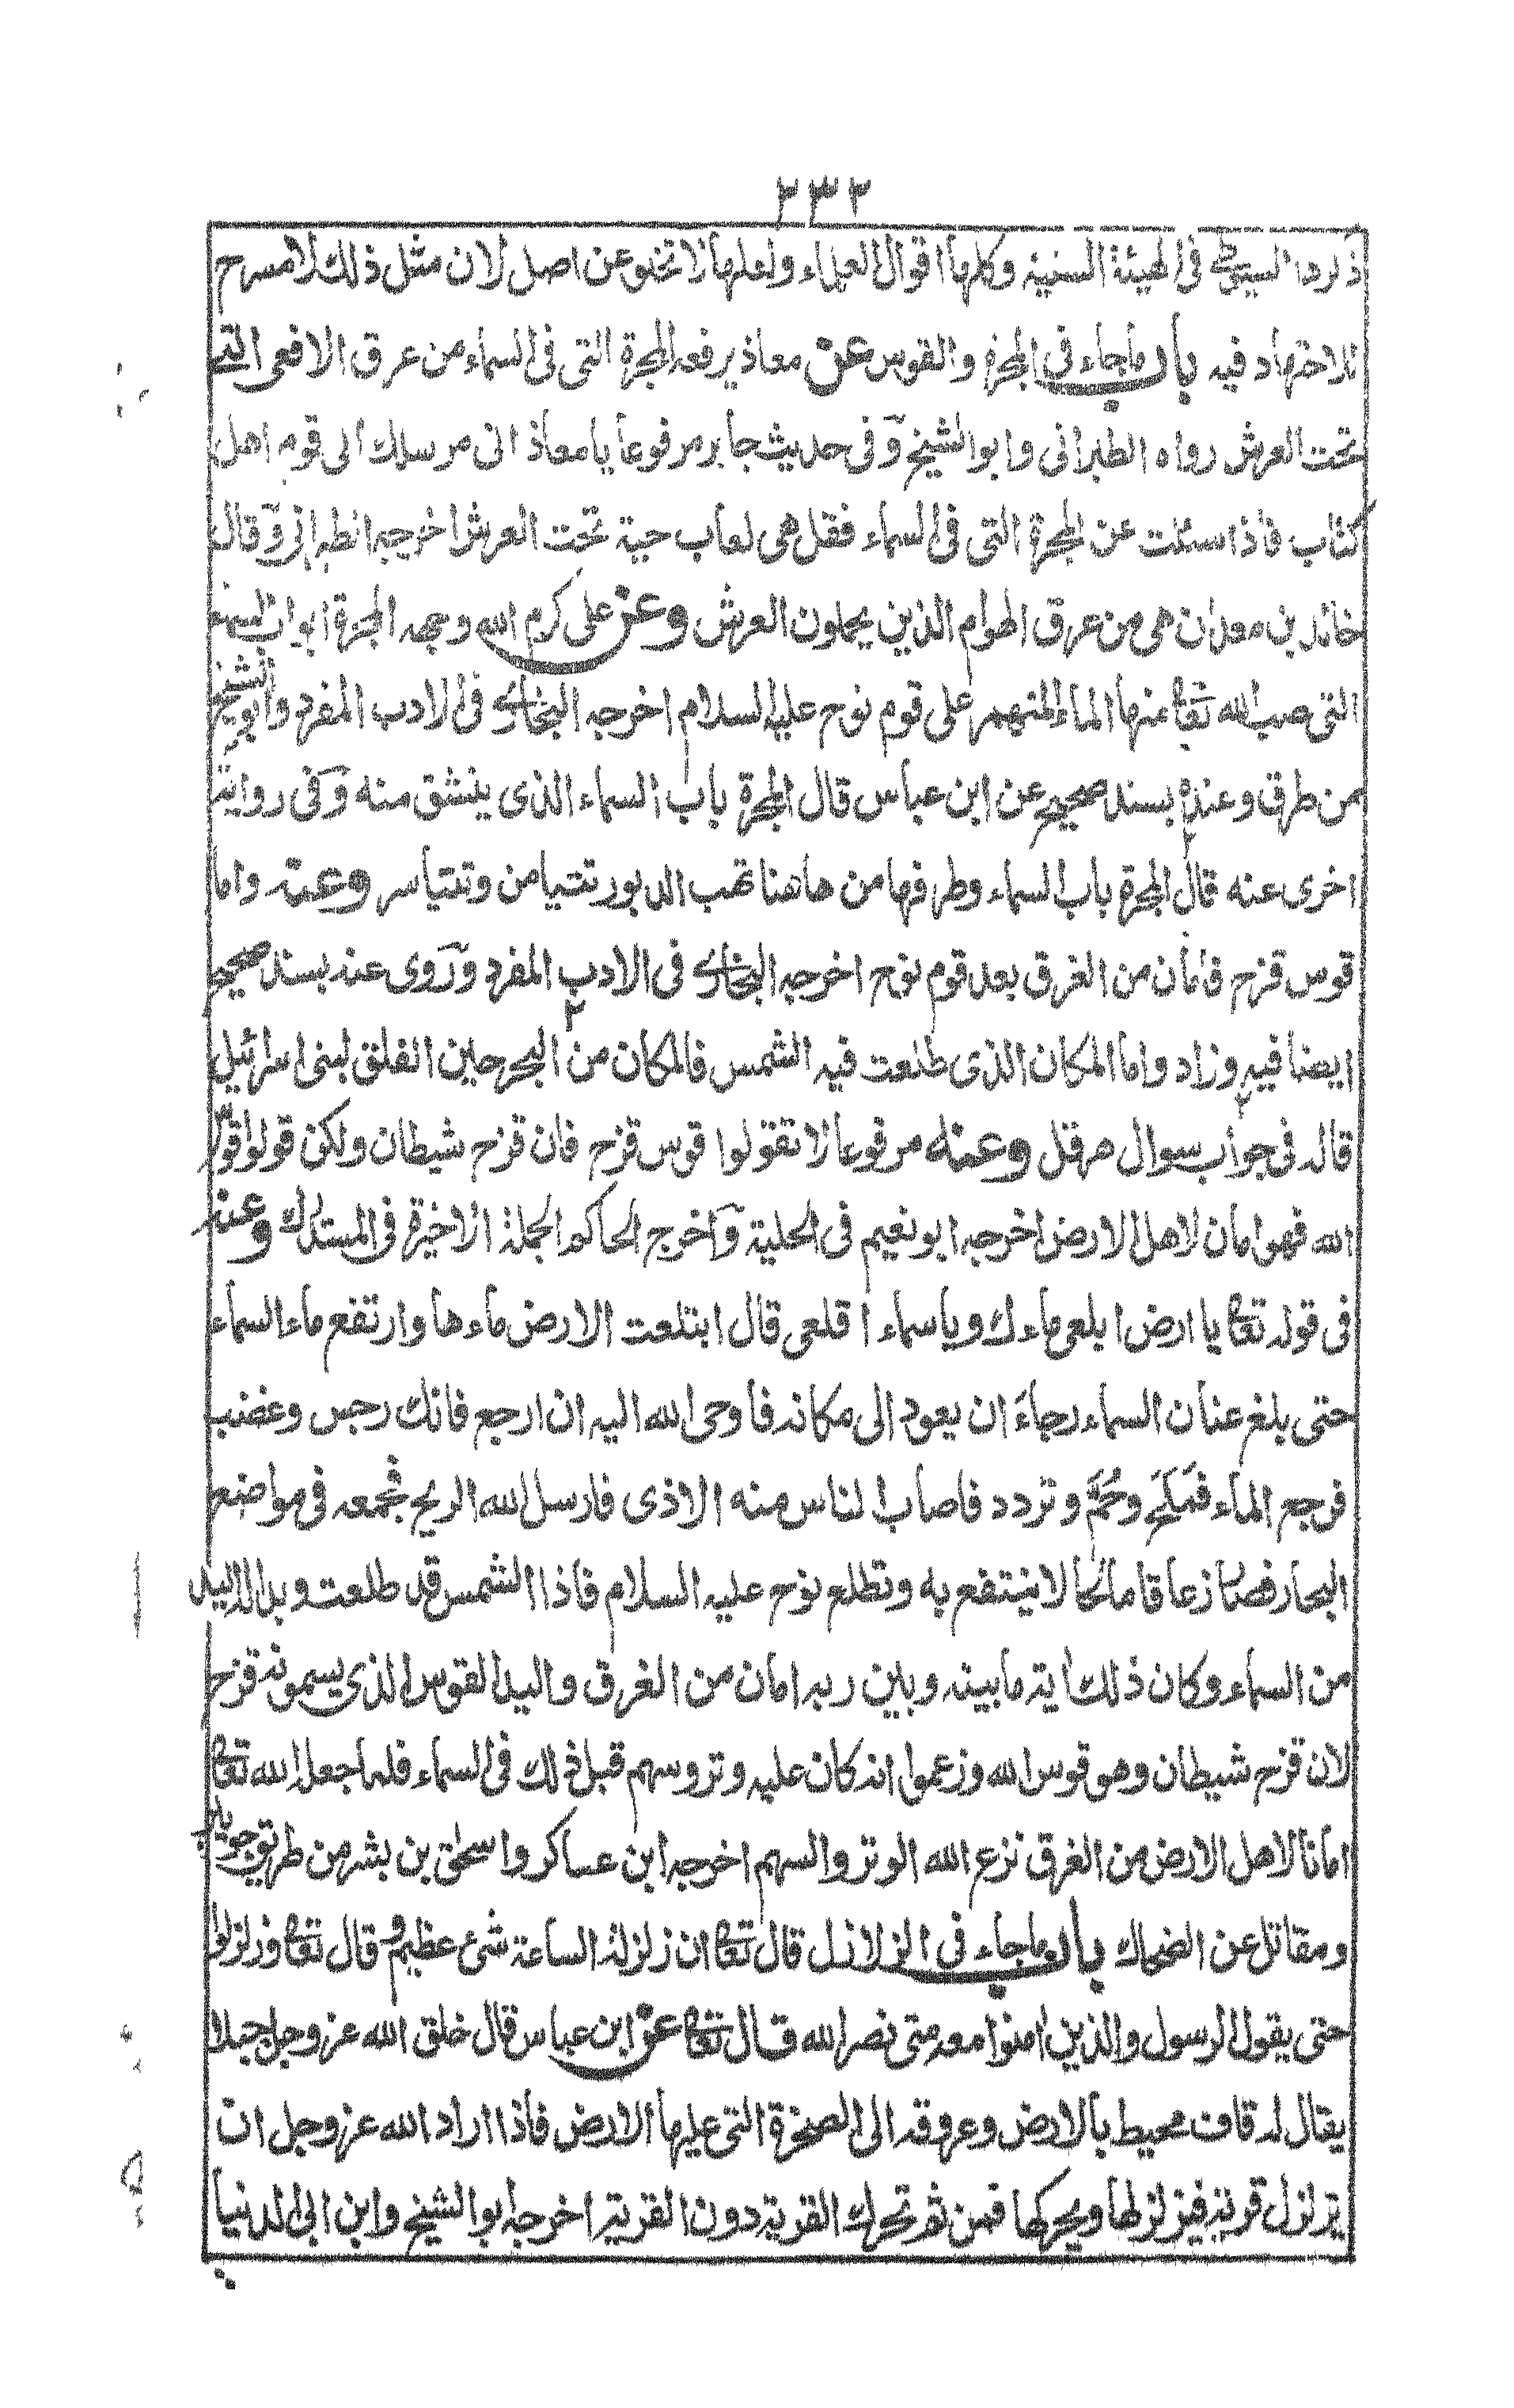 ٢٣٣
ذكرها السيوطي فى الهيئة السنية وكلها اقوال العلماء ولعلها لا تخلو عن اصل لان مثل ذلك لا مسرح
للاجتهاد فيه باب ماجاء فى المجرة والقوس عن معاذ يرفعه المجرة التى فى السماء من عرق الافعى التى
تحت العرش رواه الطبرانى وابو الشيخ وفى حديث جابر مرفوعا يا معاذ انى مرسلك الى قوم اهل
كتاب فاذا سئلت عن المجرة التى فى السماء فقل هى لعاب حية تحت العرش اخرجه الطبرانى وقال
خالد بن معدان هى من عرق الهوام الذين يحملون العرش وعن على كرم الله وجهه المجرة ابواب السماء
التى صب الله تعا منها الماء المنهمر على قوم نوح عليه السلام اخرجه البخارى فى الادب المفرد وابو الشيخ
من طرق وعنده بسند صحيح عن ابن عباس قال المجرة باب السماء الذى ينشق منه وفى رواية
اخرى عنه قال المجرة باب السماء وطرفها من هاهنا تهب الدبور تتيامن وتتياسر وعنه واما
قوس قزح فامان من الغرق بعد قوم نوح اخرجه البخارى فى الادب المفرد وروى عنه بسند صحيح
ايضا فيه وزاد واما المكان الذى طلعت فيه الشمس فالمكان من البحر حين انفلق لبنى اسرائيل
قاله فى جواب سوال هرقل وعنه مرفوعا لا تقولوا قوس قزح فان قزح شيطان ولكن قولوا قوس
الله فهو امان لاهل الارض اخرجه ابو نعيم فى الحلية واخرج الحاكم الجملة الاخيرة فى المستدرك وعنه
فى قوله تعا يا ارض ابلعى ماءك ويا سماء اقلعى قال ابتلعت الارض ماءها وارتفع ماء السماء
حتى بلغ عنان السماء رجاء ان يعود الى مكانه فاوحى الله اليه ان ارجع فانك رجس وغضب
فرجع الماء فملح وحم وتردد فاصاب الناس منه الاذى فارسل الله الريح فجمعه فى مواضع
البحار فصار زعاقا مالحا لا ينتفع به وتطلع نوح عليه السلام فاذا الشمس قد طلعت وبدا له اليد
من السماء وكان ذلك اية ما بينه وبين ربه امان من الغرق واليد القوس الذى يسمونه قزح
لان قزح شيطان وهو قوس الله وزعموا انه كان عليه وتر وسهم قبل ذلك فى السماء فلما جعل الله تعا
امانا لاهل الارض من الغرق نزع الله الوتر والسهم اخرجه ابن عساكر واسحق بن بشر من طريق جويبر
ومقاتل عن الضحاك باب ماجاء فى الزلازل قال تعا ان زلزلة الساعة شئ عظيم وقال تعا وزلزلوا
حتى يقول الرسول والذين امنوا معه متى نصر الله قال تعا عن ابن عباس قال خلق الله عز وجل جبلا
يقال له قاف محيط بالارض وعروقه الى الصخرة التى عليها الارض فاذا اراد الله عز وجل ان
يزلزل قرية فيزلزلها ويحركها فمن ثم تحرك القرية دون القرية اخرجه ابو الشيخ وابن ابى الدنيا